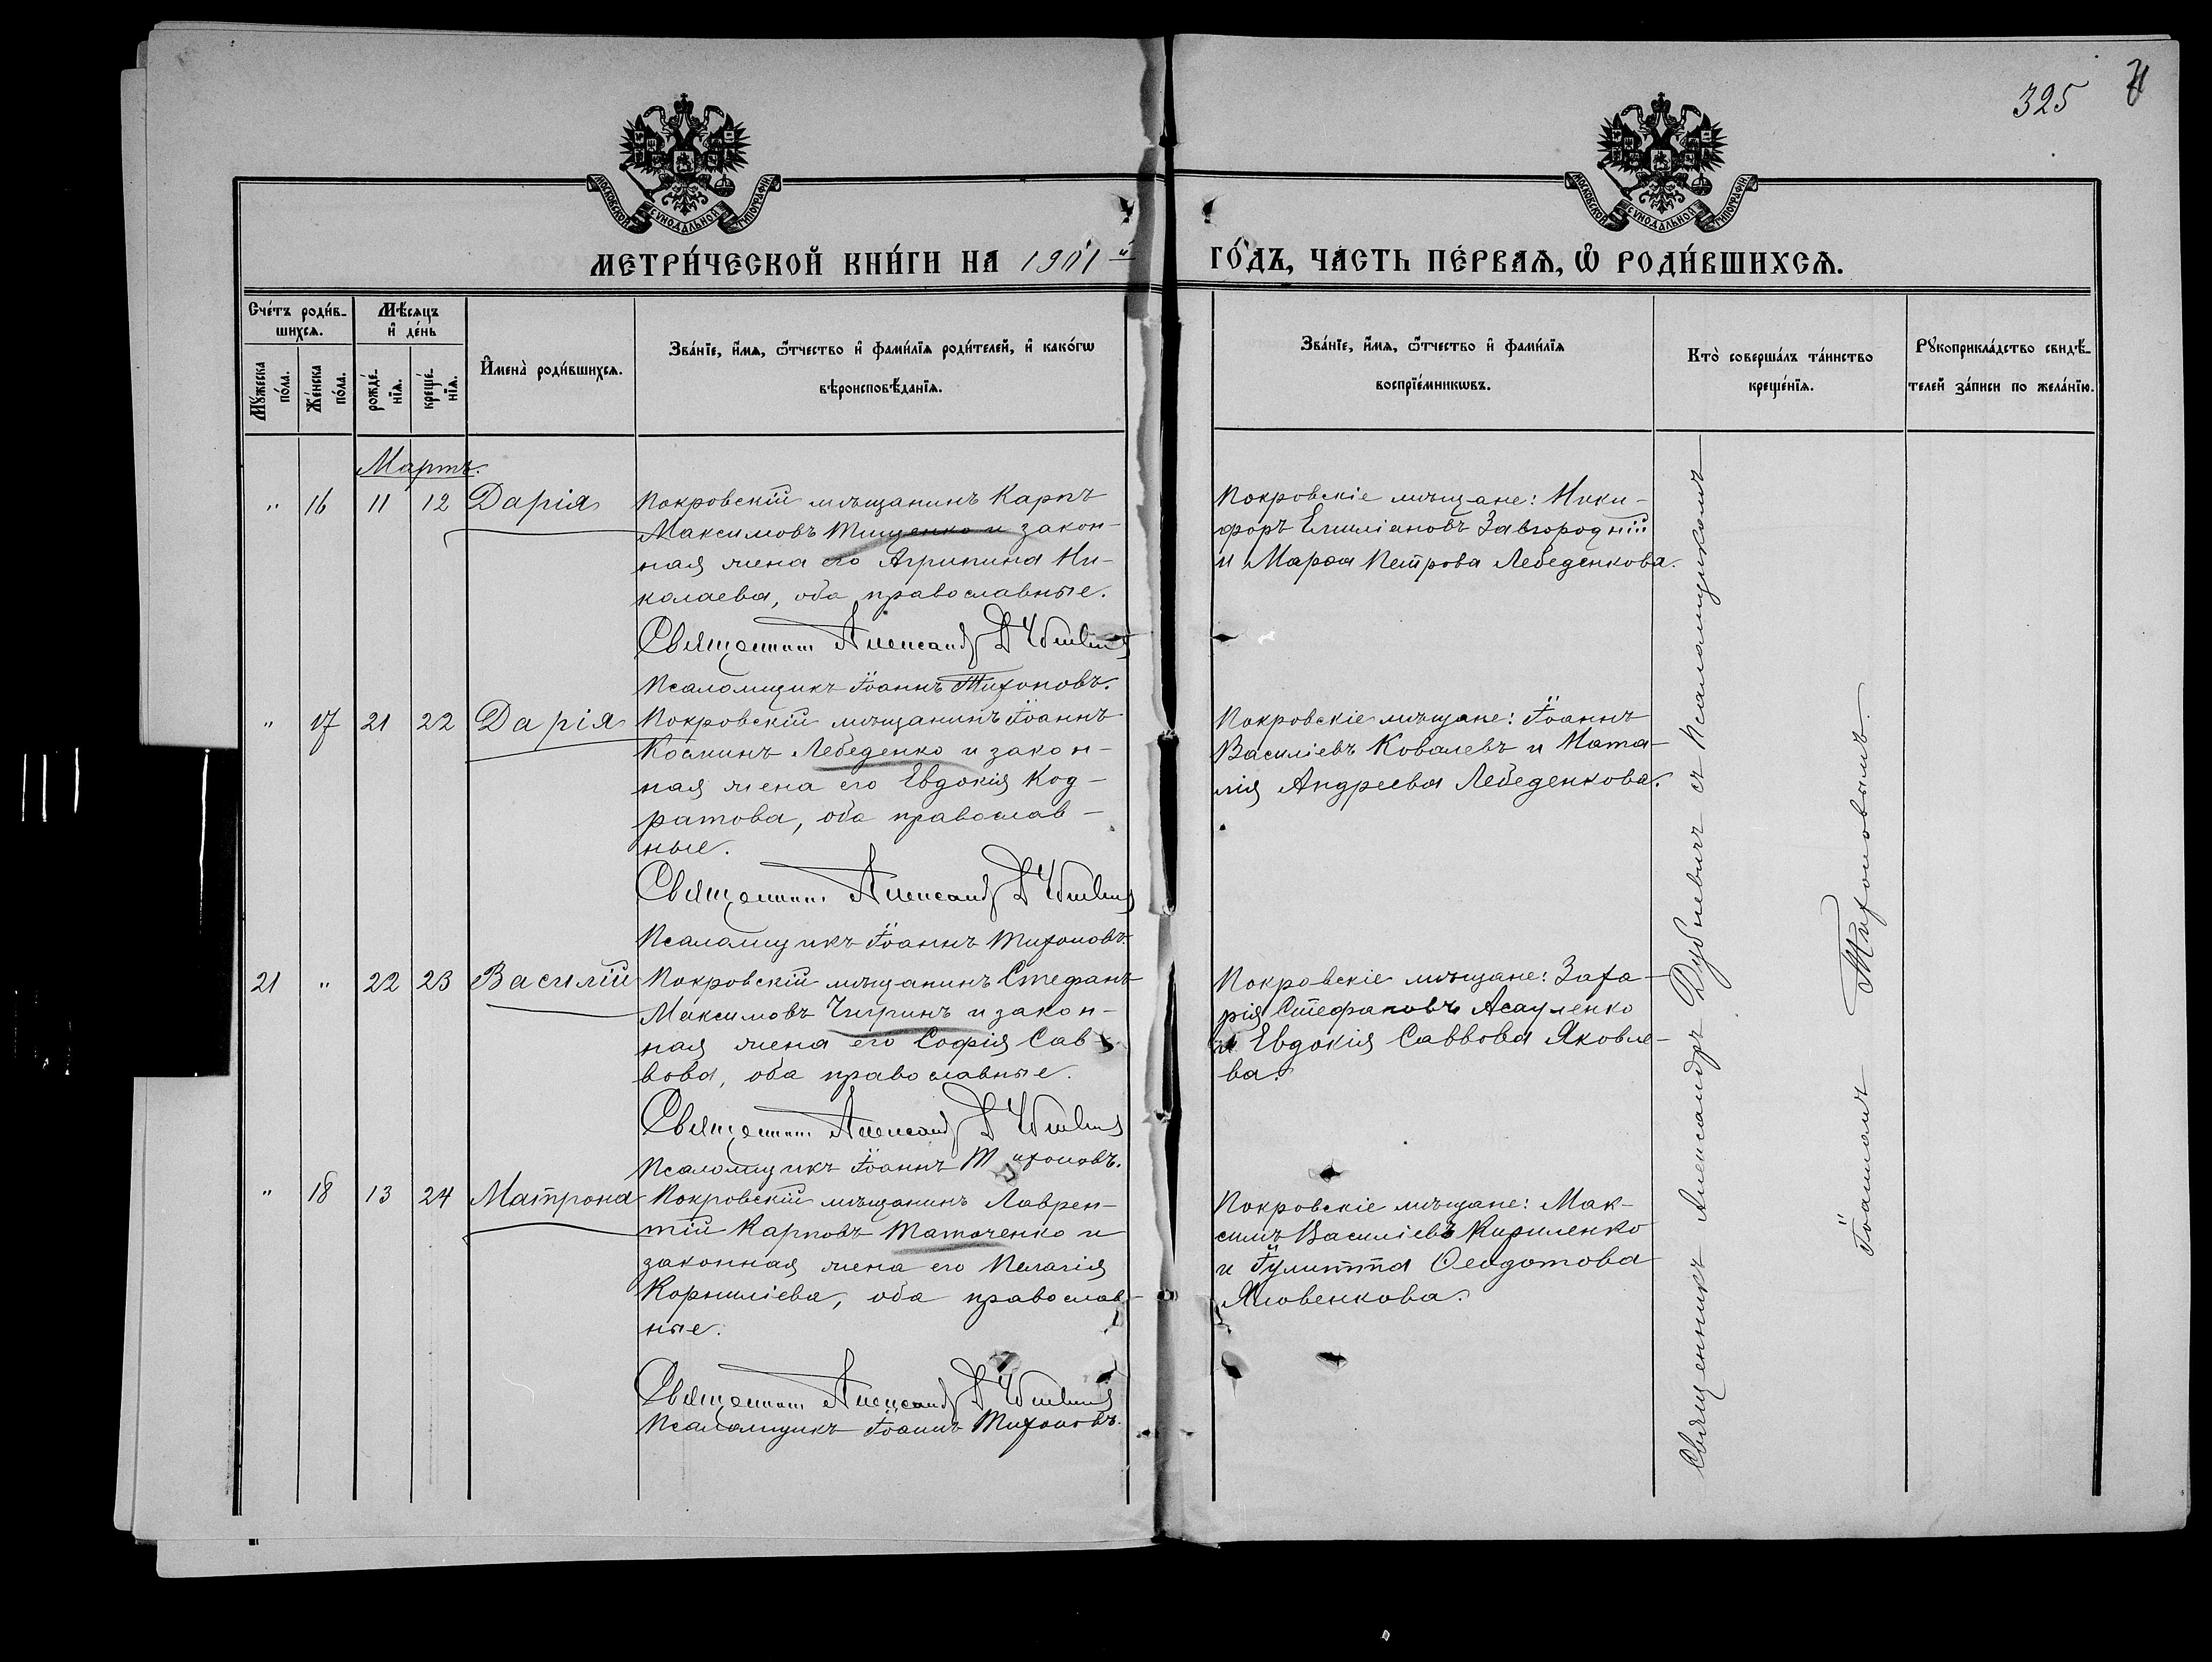 325
МОСКОВСКОЙ СѴНОДАЛЬНОЙ ТИПОГРАФІИ
МОСКОВСКОЙ СѴНОДАЛЬНОЙ ТИПОГРАФІИ
МЕТРИ́ЧЕСКОЙ КНИ́ГИ НА 1901й ГО́ДЪ, ЧА́СТЬ ПЕ́РВАѦ, Ѡ҆ РОДИ́ВШИХСѦ.
Сче́тъ роди́в-
шихсѧ.
Мꙋ́жеска по́ла.
Же́нска по́ла.
Мѣ́сѧцъ
и҆ де́нь
рожде́-
нїѧ.
креще́-
нїѧ.
И҆мена̀ роди́вшихсѧ.
Зва́нїе, и҆́мѧ, ѻ҆́тчество и҆ фами́лїѧ роди́телей, и҆ како́гѡ
вѣроисповѣ́данїѧ.
Зва́нїе, и҆́мѧ, ѻ҆́тчество и҆ фами́лїѧ
воспрїе́мникѡвъ.
Кто̀ соверша́лъ та́инство
креще́нїѧ.
Рꙋкоприкла́дство свидѣ́-
телей за́писи по жела́нїю.
Мартъ.
" 16 11 12 Дарія
Покровскій мѣщанинъ Карпъ
Максимовъ Тищенко и закон-
ная жена его Агрипина Ни-
колаева, оба православные.
Священникъ Александръ
Псаломщикъ Іоаннъ Тихоновъ.
Покровскіе мѣщане: Ники-
форъ Емиліановъ Завгородній
и Марѳа Петрова Лебеденкова.
" 17 21 22 Дарія
Покровскій мѣщанинъ Іоаннъ
Косминъ Лебеденко и закон-
ная жена его Евдокія Код-
ратова, оба православ-
ные.
Священникъ Александръ
Псаломщикъ Іоаннъ Тихоновъ.
Покровскіе мѣщане: Іоаннъ
Василіевъ Ковалевъ и Ната-
лія Андреева Лебеденкова.
21 " 22 23 Василій
Покровскій мѣщанинъ Стефанъ
Максимовъ Чигринъ и закон-
ная жена его Софія Сав-
вова, оба православные.
Священникъ Александръ
Псаломщикъ Іоаннъ Тихоновъ.
Покровскіе мѣщане: Заха-
рія Стефановъ Асауленко
и Евдокія Саввова Яковле-
ва.
" 18 13 24 Матрона
Покровскій мѣщанинъ Лаврен-
тій Карповъ Таточенко и
законная жена его Пелагія
Корниліева, оба православ-
ные.
Священникъ Александръ
Псаломщикъ Іоаннъ Тихоновъ.
Покровскіе мѣщане: Мак-
симъ Василіевъ Кириленко
и Іулитта Ѳеодотова
Яловенкова.
Священникъ Александръ Дубневичъ съ Псаломщикомъ
Іоанномъ Тихоновымъ.